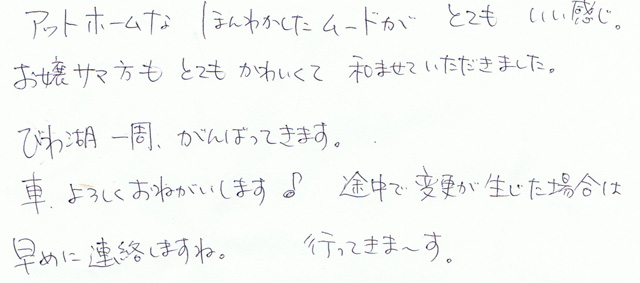 アットホームな ほんわかしたムードが とても いい感じ。
お嬢サマ方も とても かわいくて 和ませていただきました。
びわ湖 一周、がんばってきます。
車、よろしくおねがいします♪ 途中で変更が生じた場合は
早めに連絡しますね。 行ってきま〜す。